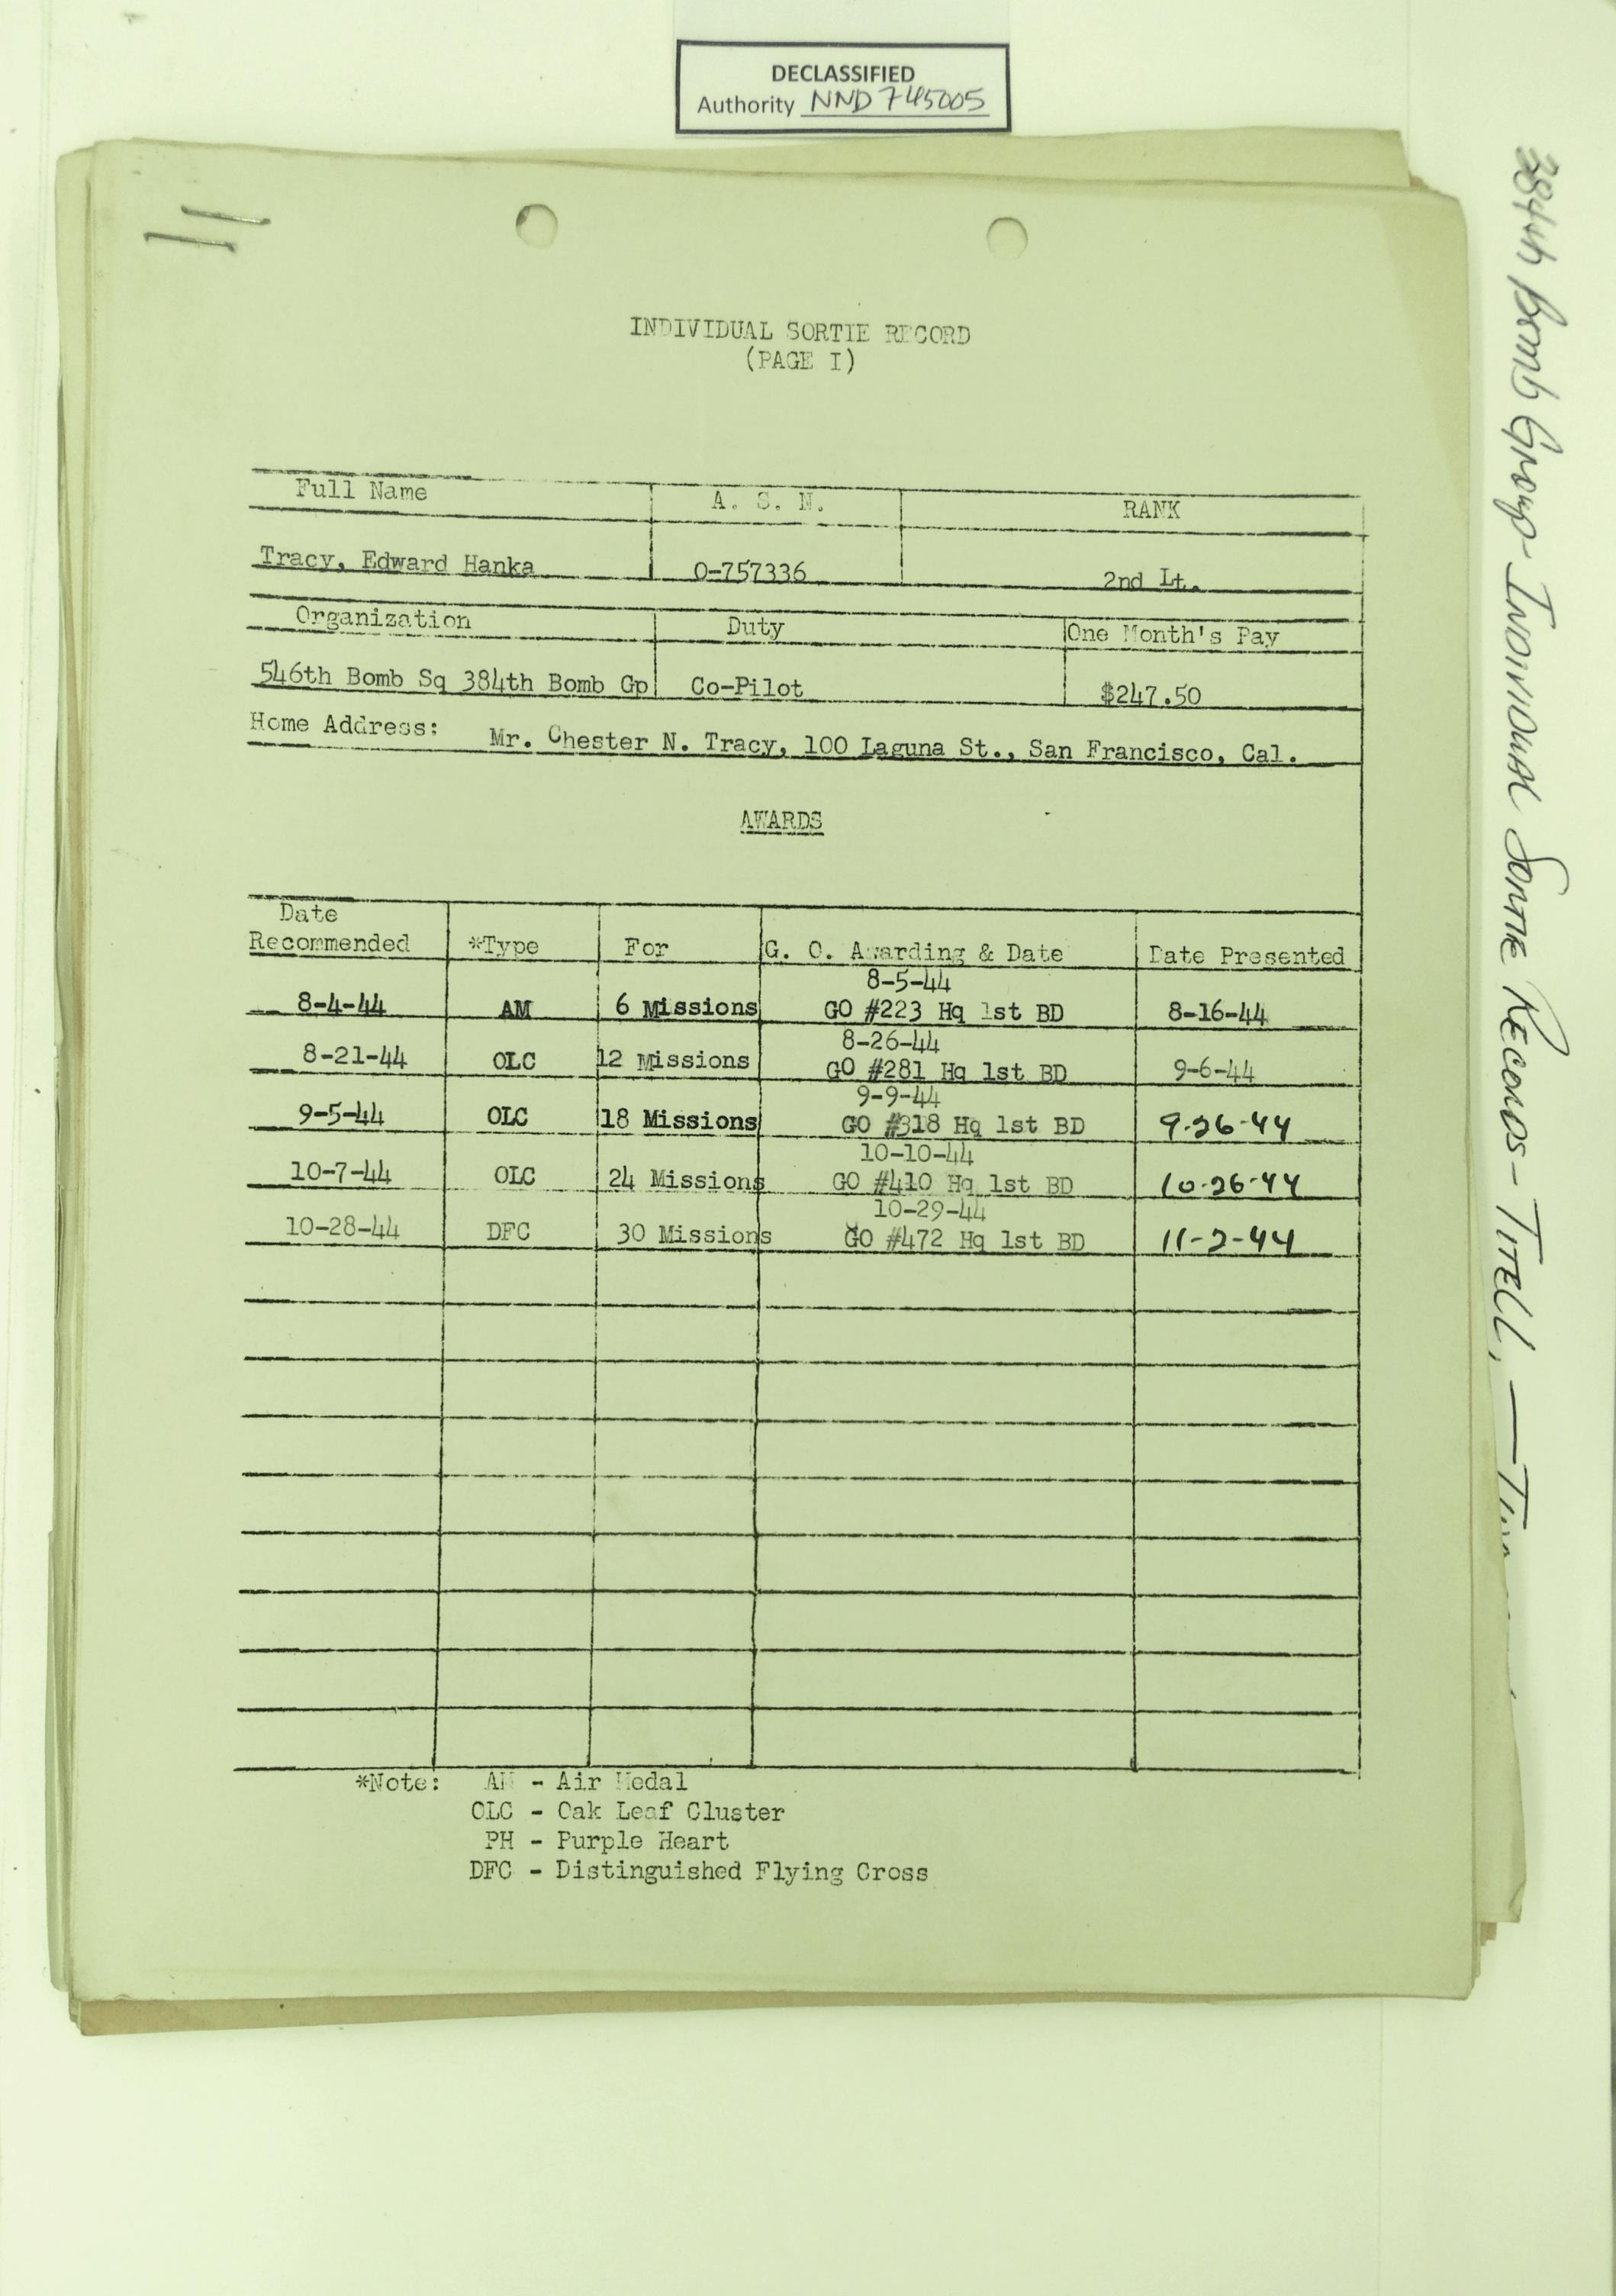 DECLASSIFIED
Authority NND 745005
INDIVIDUAL SORTIE RECORD
(PAGE I)
Full Name A. S. N. RANK
Tracy, Edward Hanka 0-757336 2nd Lt.
Organization Duty One Month's Pay
546th Bomb Sq 384th Bomb Gp Co-Pilot $247.50
Home Address: Mr. Chester N. Tracy, 100 Laguna St., San Francisco, Cal.
AWARDS
Date
Recommended *Type For G. O. Awarding & Date Date Presented
8-5-44
8-4-44 AM 6 Missions GO #223 Hq 1st BD 8-16-44
8-26-44
8-21-44 OLC 12 Missions GO #281 Hq 1st BD 9-6-44
9-9-44
9-5-44 OLC 18 Missions GO #318 Hq 1st BD 9-26-44
10-10-44
10-7-44 OLC 24 Missions GO #410 Hq 1st BD 10-26-44
10-29-44
10-28-44 DFC 30 Missions GO #472 Hq 1st BD 11-2-44
*Note: AM - Air Medal
OLC - Oak Leaf Cluster
PH - Purple Heart
DFC - Distinguished Flying Cross
384th Bomb Group - Individual Sortie Records - Titell, —